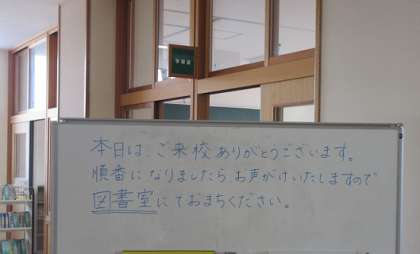 本日は、ご来校ありがとうございます。
順番になりましたらお声がけいたしますので
図書室にておまちください。